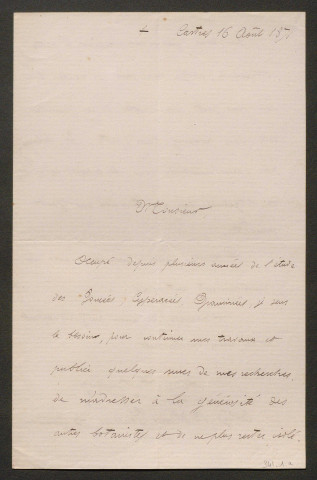 Castres 15 Août 187
Monsieur
Occupé depuis plusieurs années de l'étude
des Cyperacées j'
le besoin, pour continuer mes travaux et
publier quelques unes de mes recherches
de m'adresser à la générosité des
autres botanistes et de ne plus rester isolé.